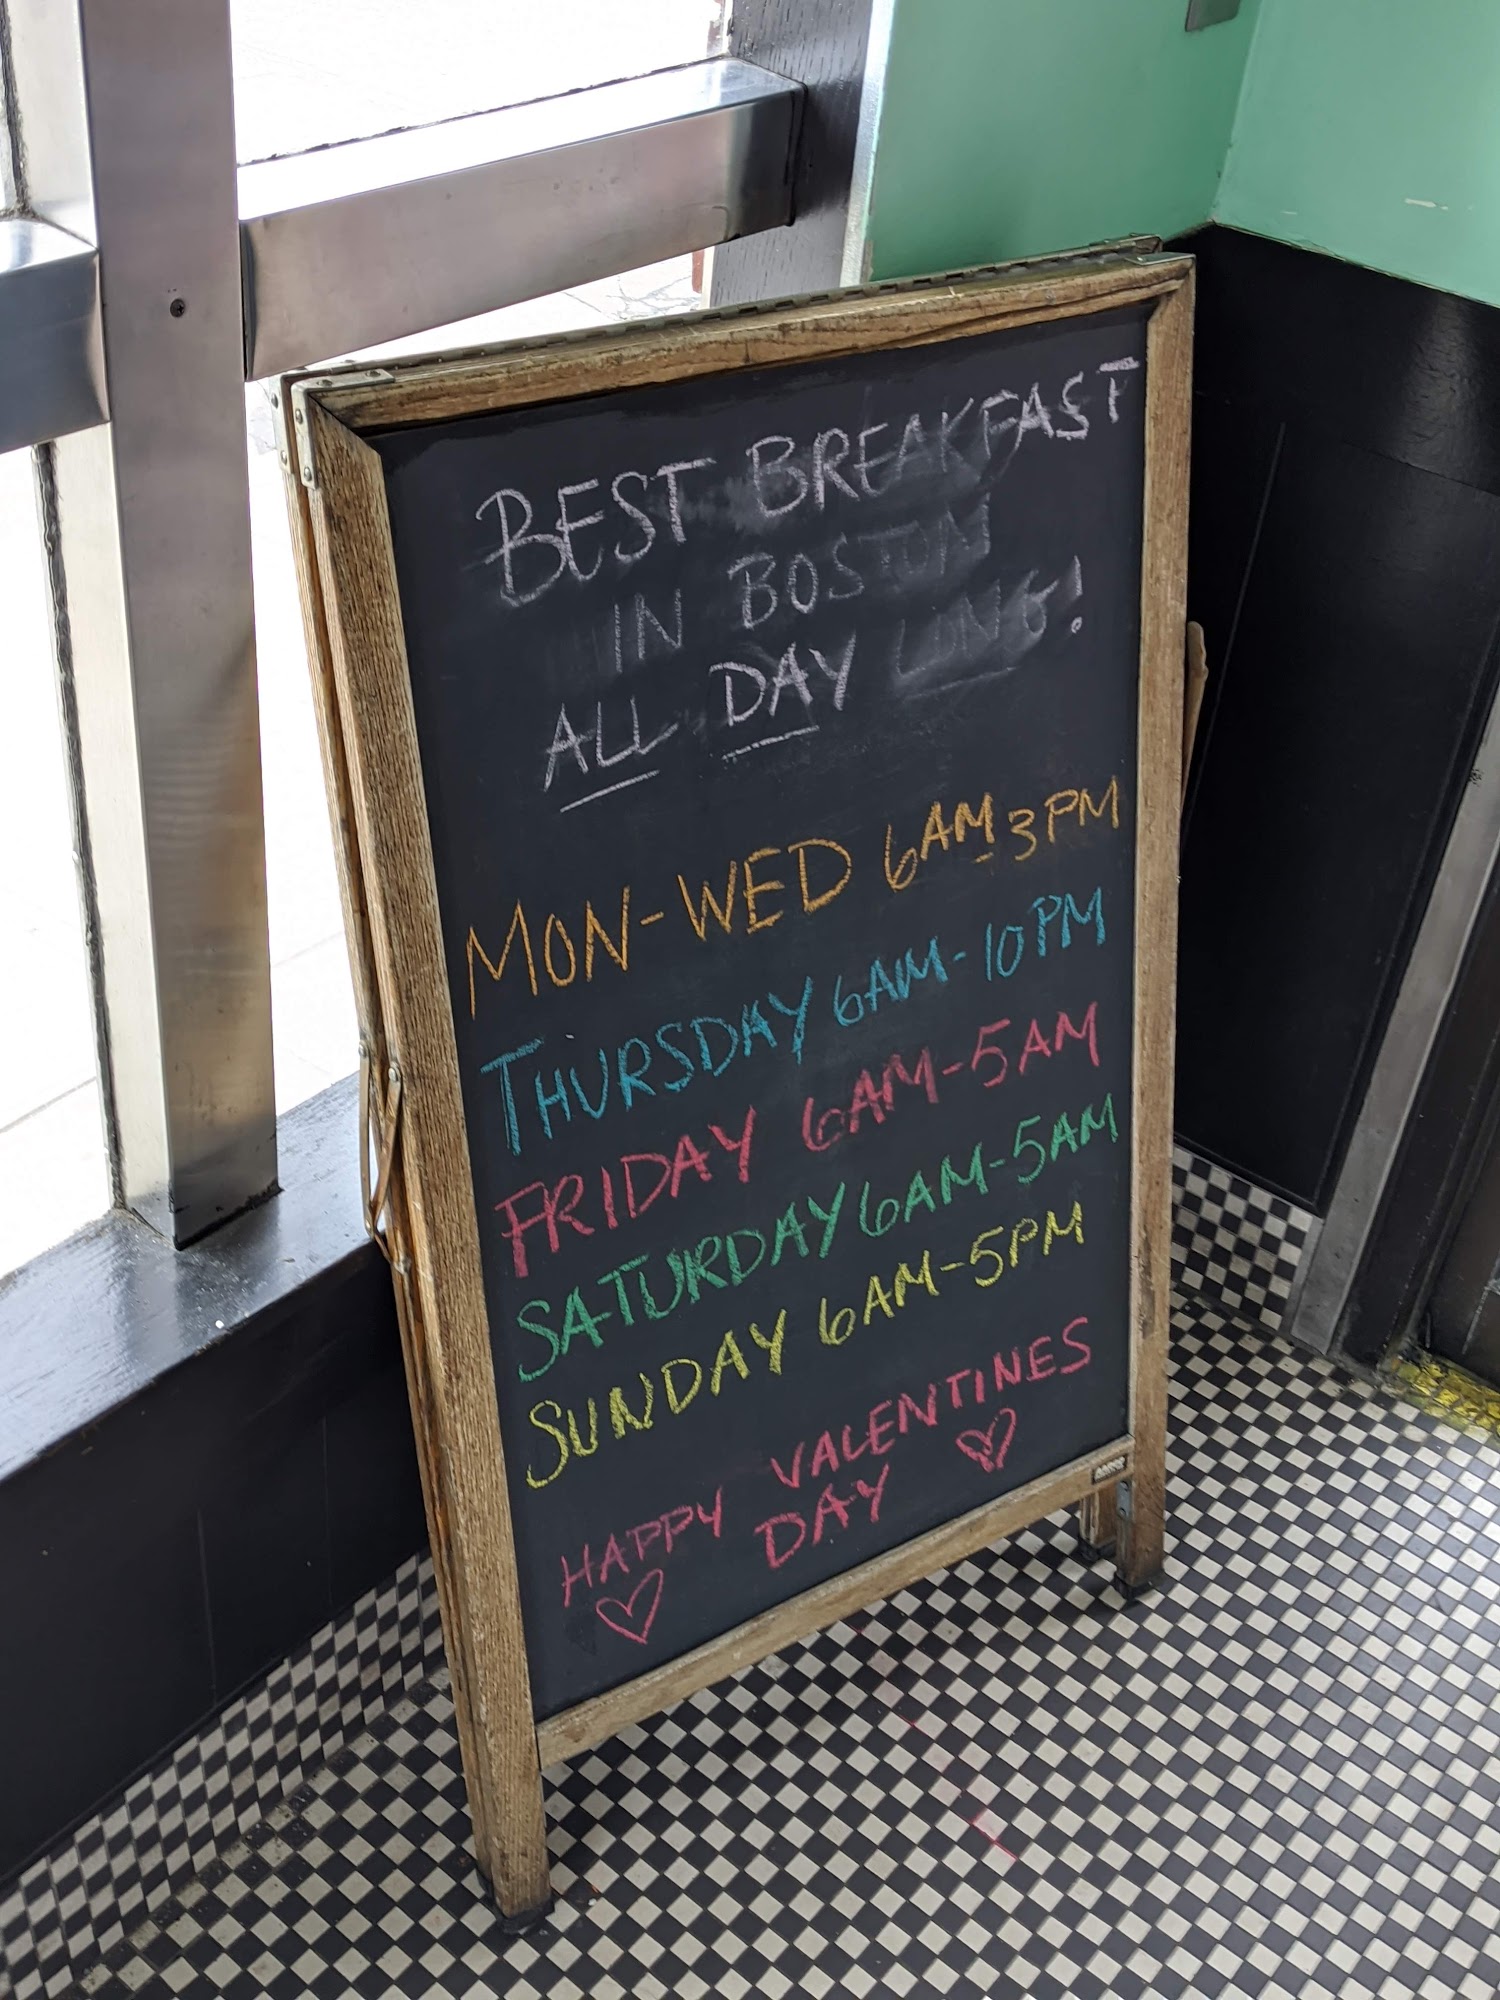 BEST BREAKFAST
IN BOSTON
ALL DAY LONG!
MON-WED 6AM-3PM
THURSDAY 6AM-10PM
FRIDAY 6AM-5AM
SATURDAY 6AM-5AM
SUNDAY 6AM-5PM
HAPPY VALENTINES
DAY